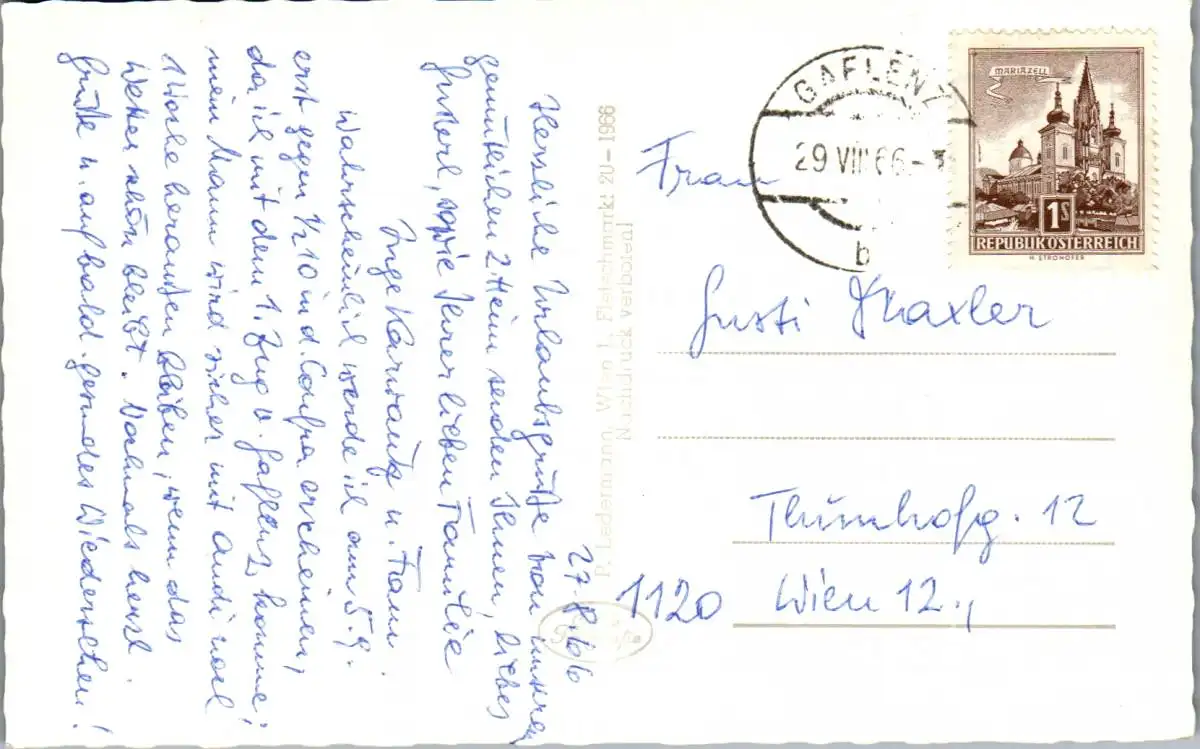 27.8.66
Herzliche Urlaubsgrüße von unserem
gemütlichen 2. Heim senden Ihnen, liebes
Gusterl, sowie Ihrer lieben Familie
Inge u. Fam.
Wahrscheinlich werde ich am 5.9.
erst gegen 1/2 10 in d. erscheinen,
da ich mit dem 1. Zug v. Gaflenz komme;
mein Mann wird sicher mit Andi noch
1 Woche heraußen bleiben, wenn das
Wetter schön bleibt. Nochmals herzl.
Grüße u. auf bald. gesundes Wiedersehen!
P. Ledermann, Wien I., Fleischmarkt 20 - 1966
Nachdruck verboten!
GAFLENZ
29 VIII 66
b
MARIAZELL
1S
REPUBLIK ÖSTERREICH
H. STROHOFER
Frau
Gusti
Thunhofg. 12
1120 Wien 12.,